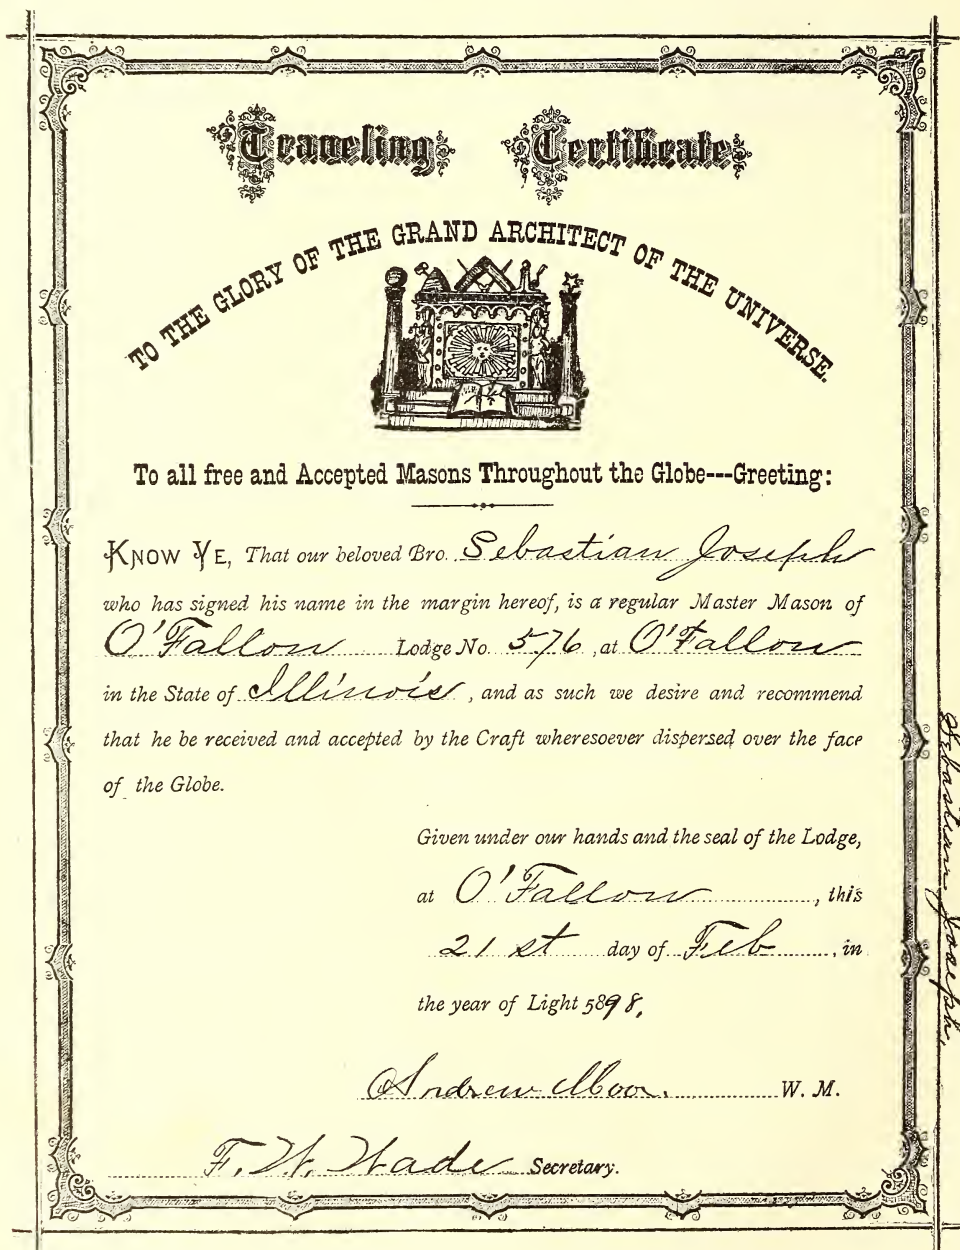 Traveling Certificate
TO THE GLORY OF THE GRAND ARCHITECT OF THE UNIVERSE.
To all free and Accepted Masons Throughout the Globe---Greeting:
KNOW YE, That our beloved Bro. Sebastian Joseph
who has signed his name in the margin hereof, is a regular Master Mason of
O'Fallon Lodge No. 576, at O'Fallon
in the State of Illinois, and as such we desire and recommend
that he be received and accepted by the Craft wheresoever dispersed over the face
of the Globe.
Given under our hands and the seal of the Lodge,
at O'Fallon, this
21st day of Feb, in
the year of Light 5898,
Andrew Moor. W. M.
F. W. Wade Secretary.
Sebastian Joseph.